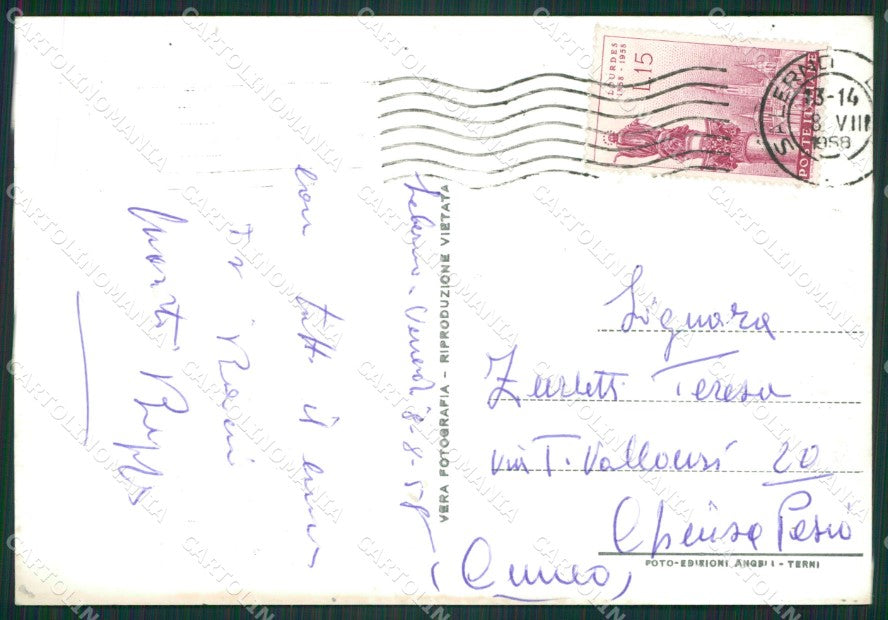 LOURDES
1858 - 1958
L.15
POSTE ITALIANE
SALERNO
13-14
8 VIII
1958
Salerno - Venerdì 8-8-58
con tutto il
Baci
VERA FOTOGRAFIA - RIPRODUZIONE VIETATA
Signora
Zurletti Teresa
via T. Vallauri 20
Chiusa Pesio
(Cuneo)
FOTO-EDIZIONI ANGELI - TERNI
CARTOLINOMANIA